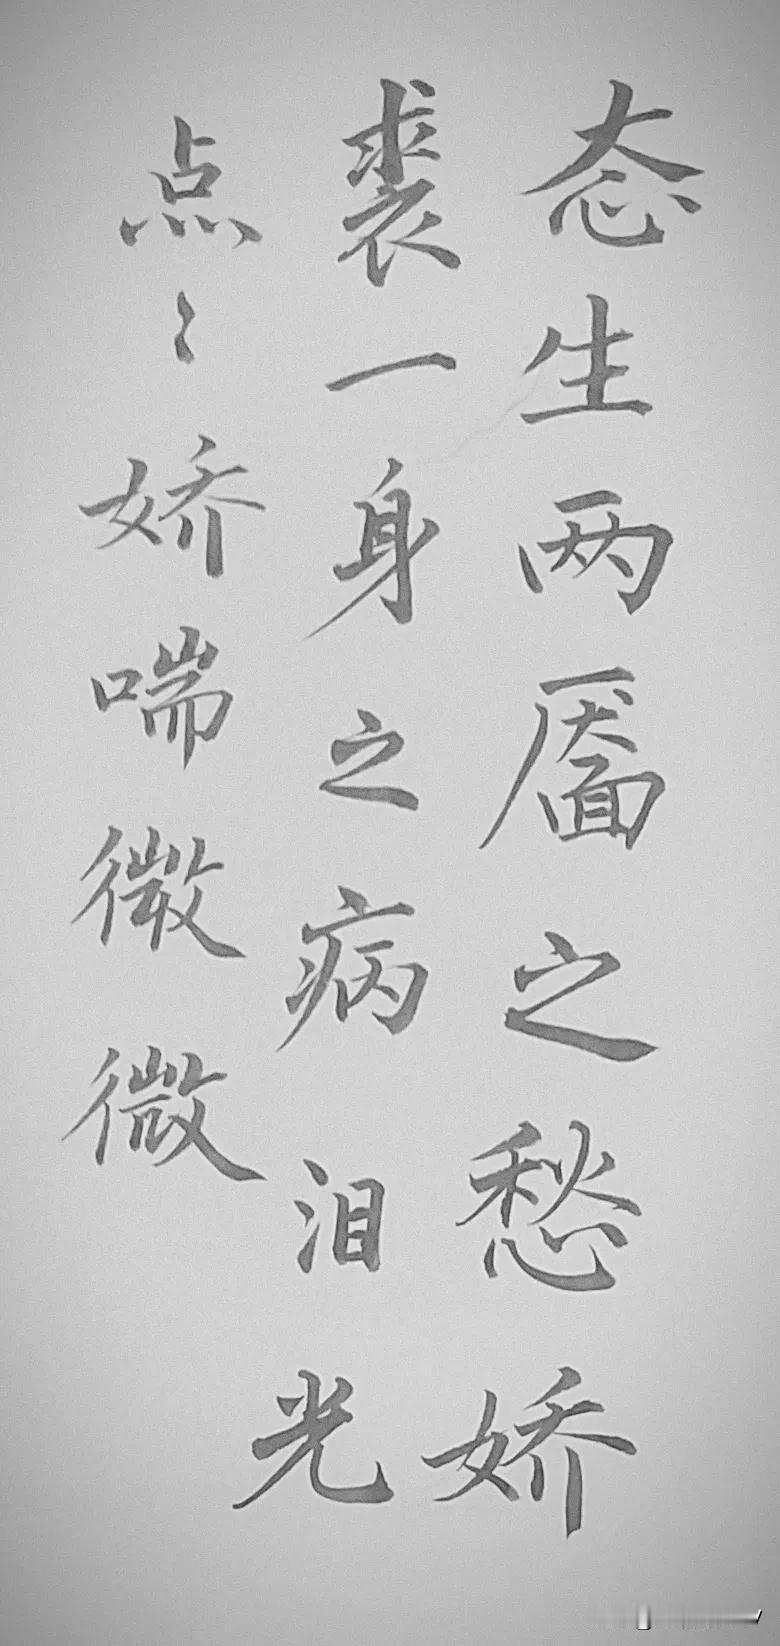 态生两靥之愁娇
裘一身之病泪光
点〻娇喘微微